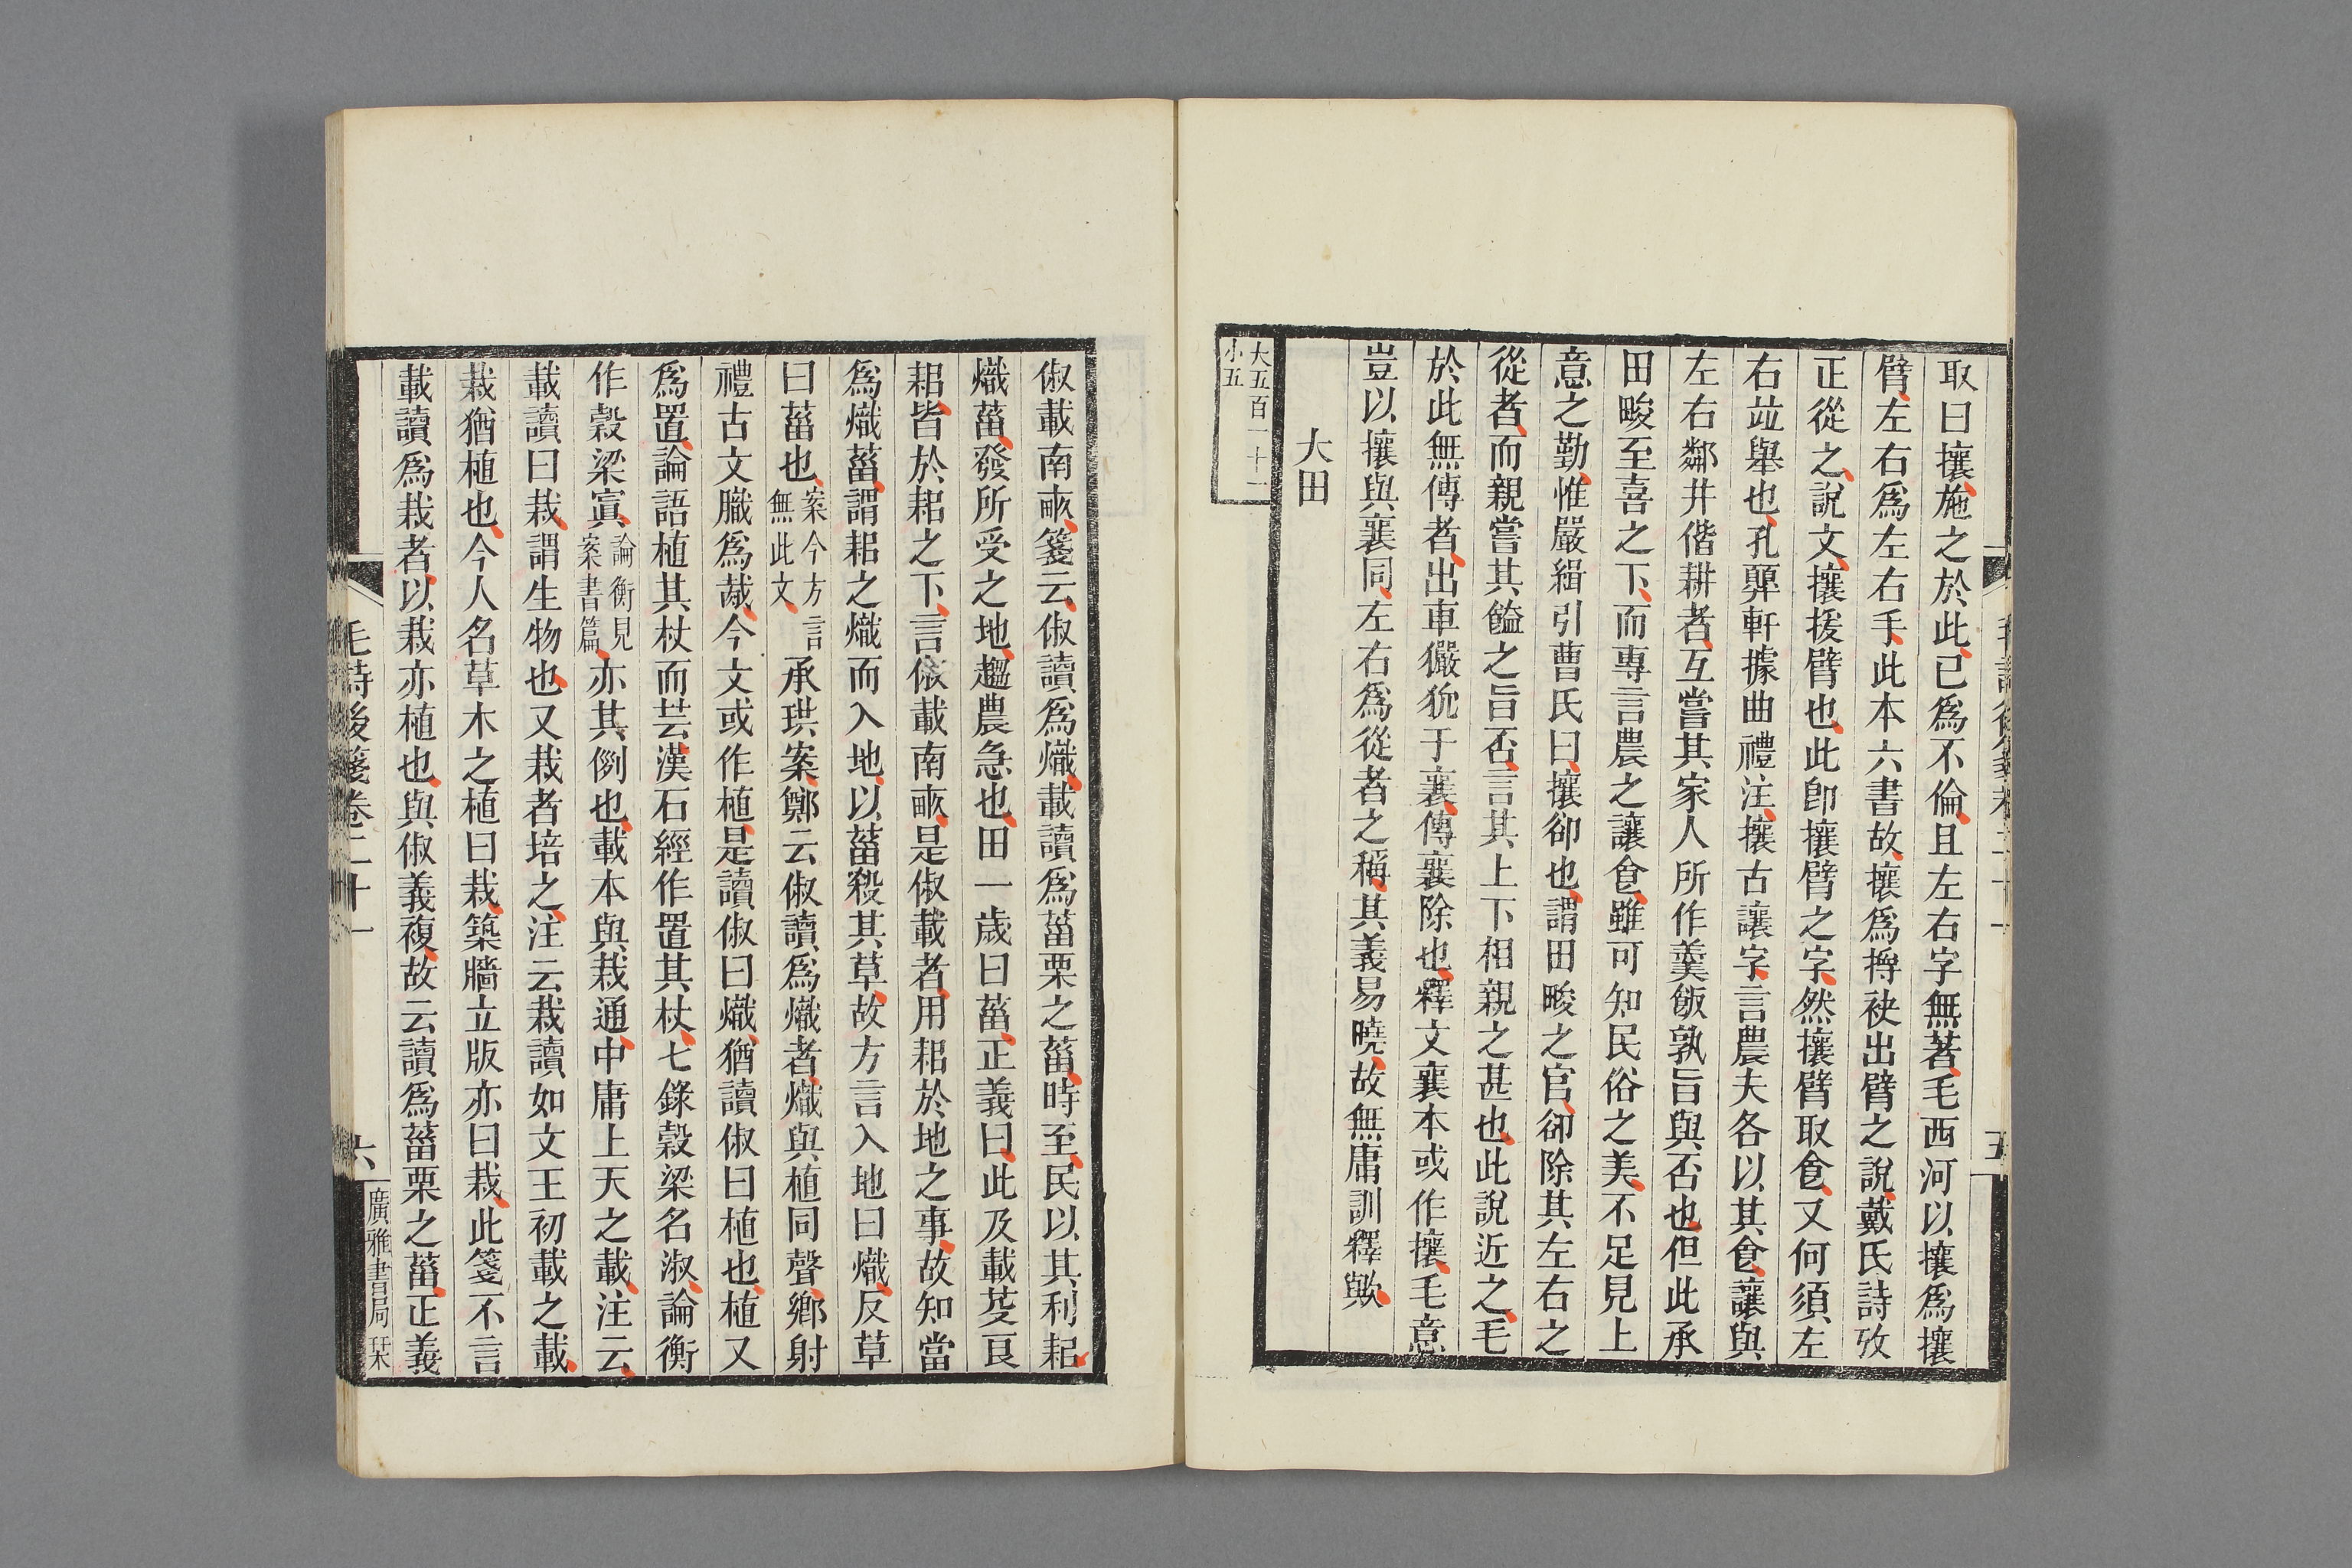 取曰攘施之於此已爲不倫且左右字無著毛西河以攘爲攘
臂左右爲左右手此本六書故攘爲揎袂出臂之說戴氏詩攷
正從之說文攘援臂也此卽攘臂之字然攘臂取食又何須左
右竝舉也孔顨軒據曲禮注攘古讓字言農夫各以其食讓與
左右鄰井偕耕者互嘗其家人所作羹飯孰旨與否也但此承
田畯至喜之下而專言農之讓食雖可知民俗之美不足見上
意之勤惟嚴緝引曹氏曰攘卻也謂田畯之官卻除其左右之
從者而親嘗其饁之旨否言其上下相親之甚也此說近之毛
於此無傳者出車玁狁于襄傳襄除也釋文襄本或作攘毛意
豈以攘與襄同左右爲從者之稱其義易曉故無庸訓釋歟
大田
大五百一十一
小五
五
俶載南畝箋云俶讀爲熾載讀爲菑栗之菑時至民以其利耜
熾菑發所受之地趨農急也田一歲曰菑正義曰此及載芟良
耜皆於耜之下言俶載南畝是俶載者用耜於地之事故知當
爲熾菑謂耜之熾而入地以菑殺其草故方言入地曰熾反草
曰菑也案今方言無此文承珙案鄭云俶讀爲熾者熾與植同聲鄉射
禮古文臘爲胾今文或作植是讀俶曰熾猶讀俶曰植也植又
爲置論語植其杖而芸漢石經作置其杖七錄穀梁名淑論衡
作穀梁寘論衡見案書篇亦其例也載本與栽通中庸上天之載注云
載讀曰栽謂生物也又栽者培之注云栽讀如文王初載之載
栽猶植也今人名草木之植曰栽築牆立版亦曰栽此箋不言
載讀爲栽者以栽亦植也與俶義複故云讀爲菑栗之菑正義
毛詩後箋卷二十一
六
廣雅書局栞